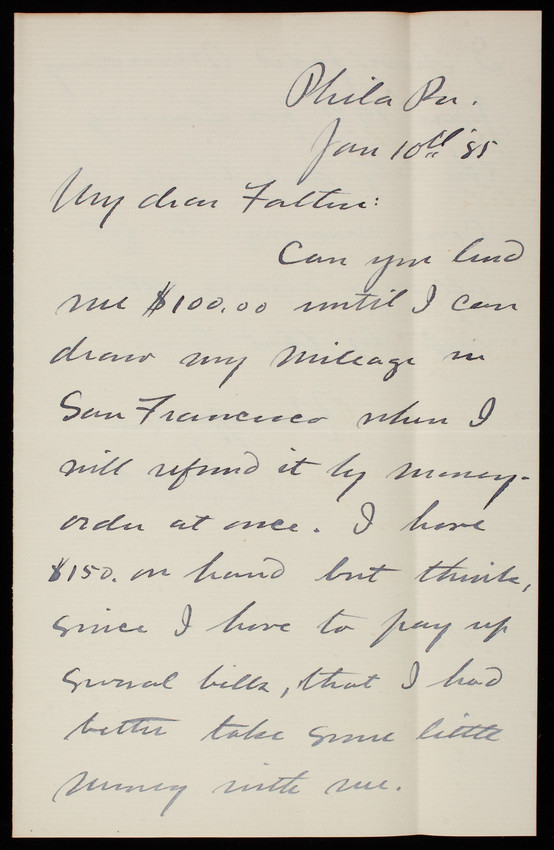 Phila Pa.
Jan 10th '85
My dear Father:
Can you lend
me $100.00 until I can
draw my mileage in
San Francisco when I
will refund it by money-
order at once. I have
$150. on hand but think,
since I have to pay up
several bills, that I had
better take some little
money with me.